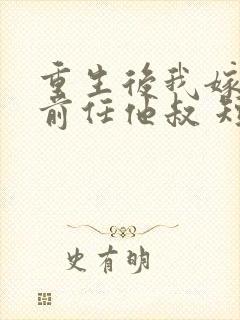 重生後我嫁
前任他叔 短
史有明